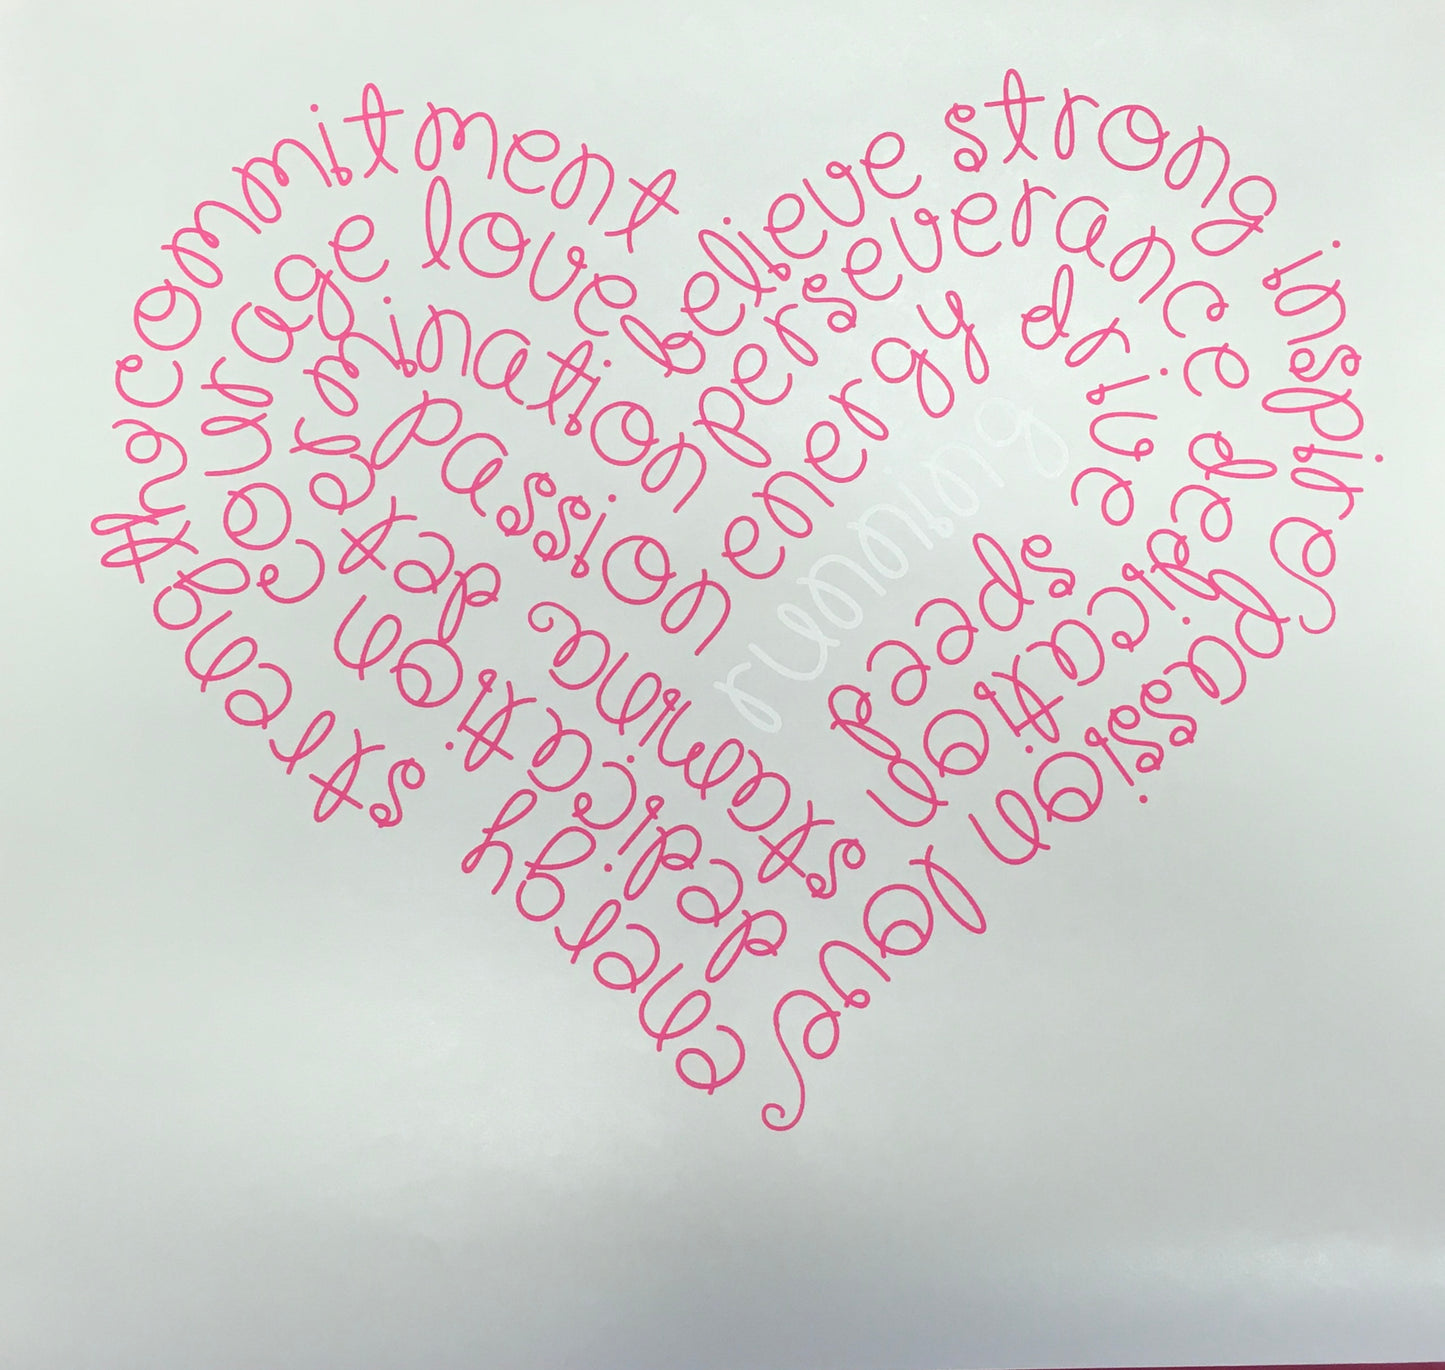 energy strength commitment believe strong inspire passion love
dedication courage love perseverance dedication
stamina determination energy drive speed
passion running